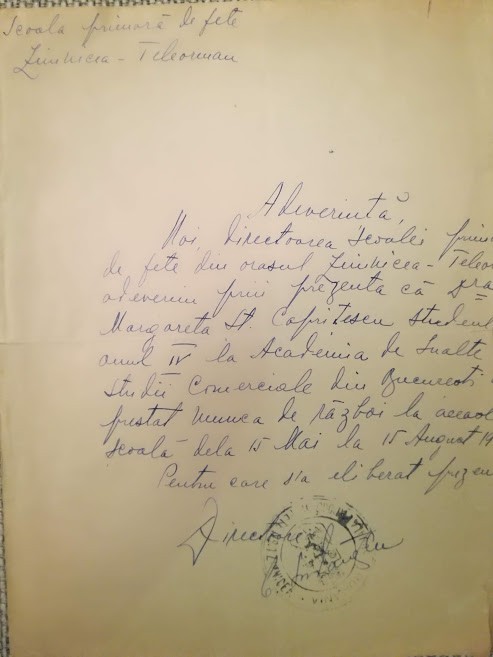 Scoala primară de fete
Zimnicea - Teleorman
Adeverintă,
Noi, Directoarea scoalei prim
de fete din orasul Zimnicea - Teleor
adeverim prin prezenta că D-ra
Margareta St. student
anul IV la Academia de Inalte
studii Comerciale din Bucuresti
prestat munca de război la aceas
scoală dela 15 Mai la 15 August 19
Pentru care s'a eliberat prezen
Directoare